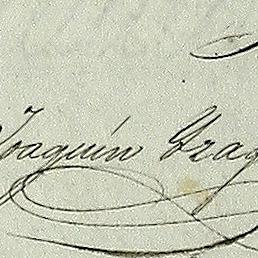 Joaquín Grag